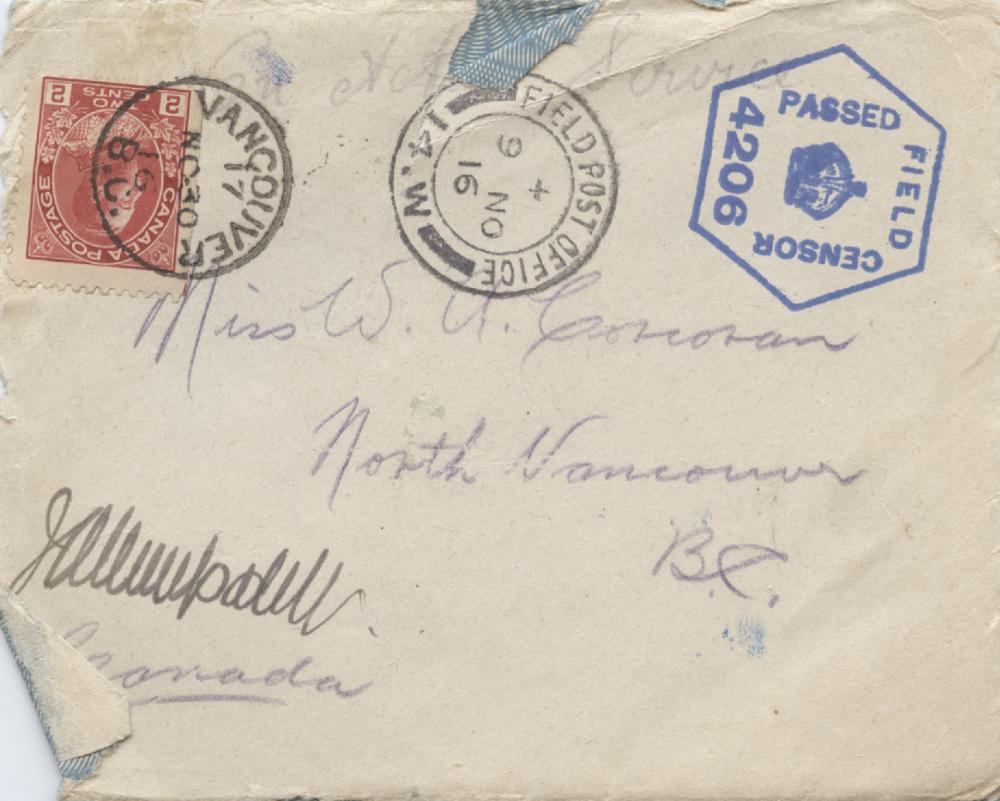 On Active Service
2 TWO CENTS 2
CANADA POSTAGE
VANCOUVER
17
NO 30
16
B.C.
FIELD POST OFFICE
14.W
9
4
NO
16
PASSED
FIELD
CENSOR
4206
Miss W. A. Corcoran
North Vancouver
B.C.
Canada